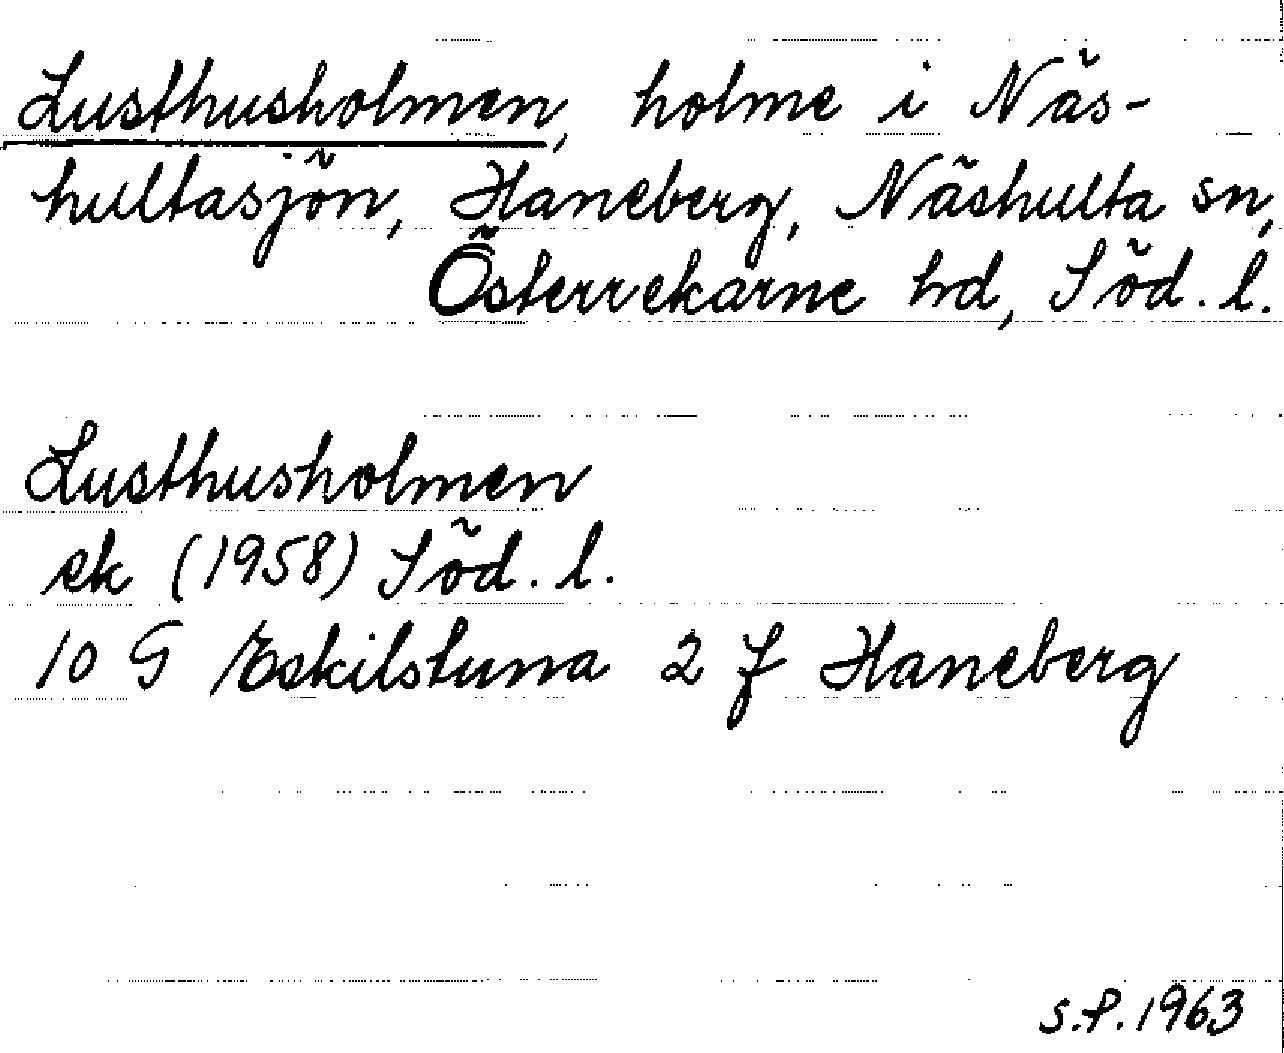 Lusthusholmen, holme i Näs-
hultasjön, Haneberg, Näshulta sn,
Österrekarne hd, Söd. l.
Lusthusholmen
ek (1958) Söd. l.
10 G Eskilstuna 2 f Haneberg
S.P. 1963